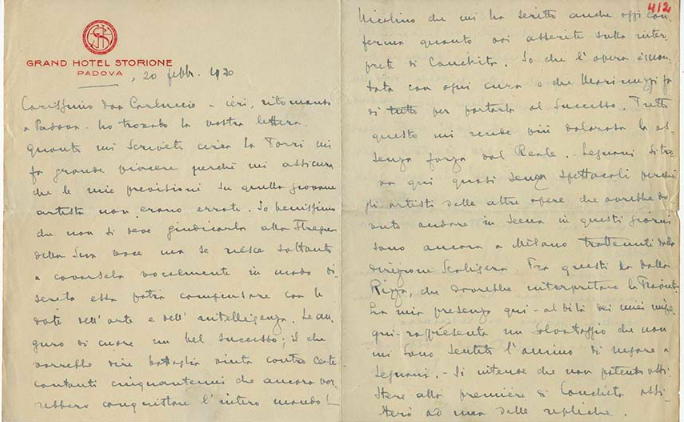 GRAND HOTEL STORIONE
PADOVA
20 febbr. 1930
Carissimo don Carluccio - ieri, ritornando
a Padova - ho trovato la vostra lettera.
Quanto mi scrivete circa la Torri mi
fa grande piacere perché mi assicura
che le mie previsioni su quella giovane
artista non erano errate. So benissimo
che non si deve giudicarla alla stregua
della sua voce ma se riesce soltanto
a cavarsela vocalmente in modo di-
screto essa potrà compensare con le
doti dell'arte e dell'intelligenza. Le au-
guro di cuore un bel successo; il che
vorrebbe dire battaglia vinta contro certe
cantanti cinquantenni che ancora vor-
rebbero conquistare l'intero mondo!
412
Nicolino che mi ha scritto anche oggi con-
ferma quanto voi asserite sulla inter-
prete di Conchita. So che l'opera è mon-
tata con ogni cura e che Marinuzzi fa
di tutto per portarla al successo. Tutto
questo mi rende più dolorosa la as-
senza forzata dal Reale. Legnani si tro-
va qui quasi senza spettacoli perché
gli artisti delle altre opere che avrebbero do-
vuto andare in scena in questi giorni
sono ancora a Milano trattenuti dalla
direzione Scaligera. Fra questi la Dalla
Rizza, che dovrebbe interpretare la Traviata.
La mia presenza qui -
qui - rappresenta un salvataggio che non
mi sono sentito l'animo di negare a
Legnani. - Si intende che non potendo assi-
stere alla première di Conchita assi-
sterò ad una delle repliche.